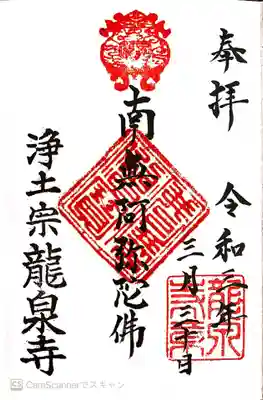 奉拝
令和三年
三月三十日
南無阿弥陀佛
浄土宗龍泉寺
CS CamScannerでスキャン